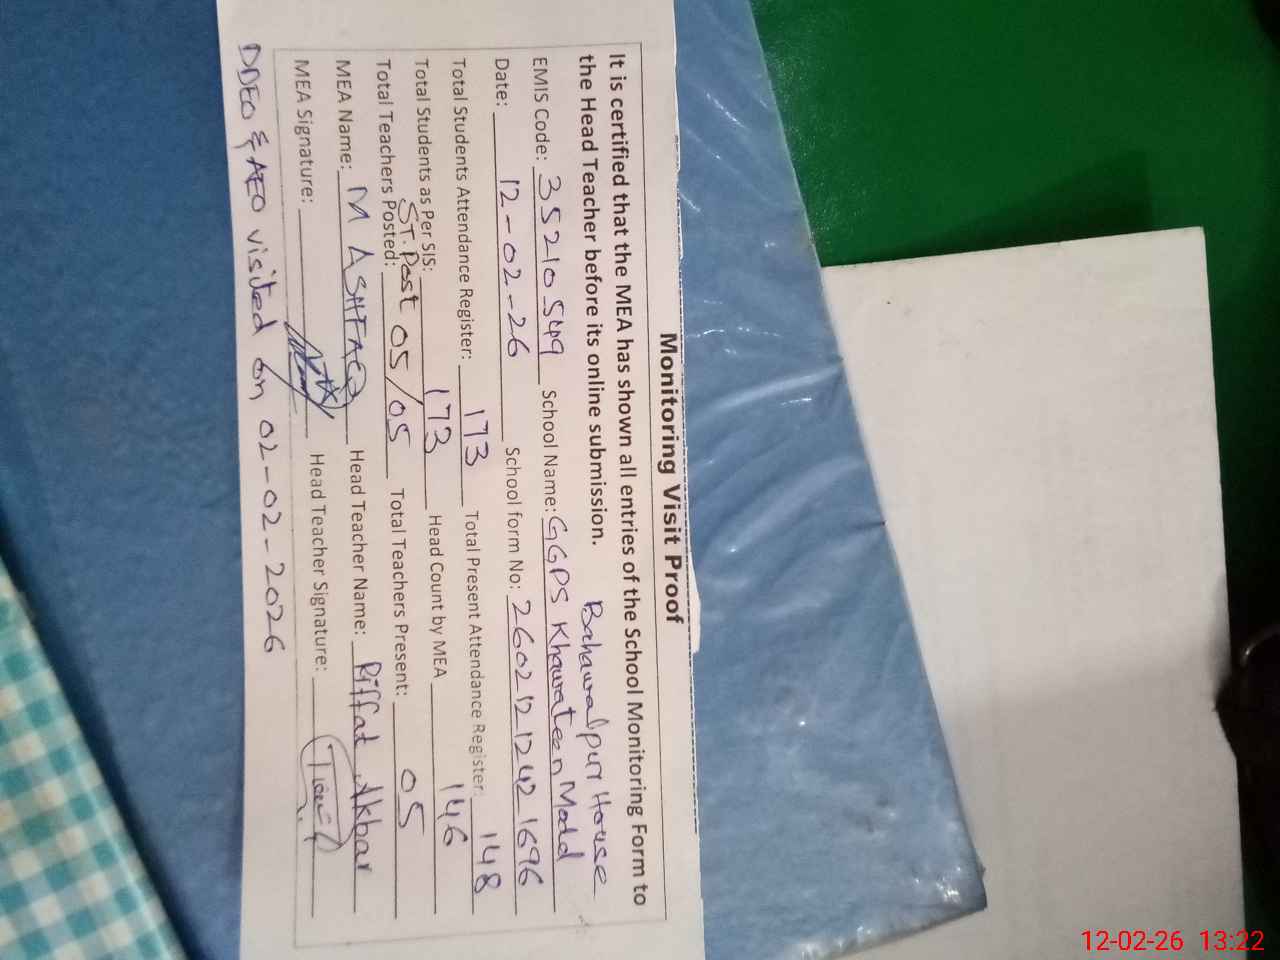 Monitoring Visit Proof
It is certified that the MEA has shown all entries of the School Monitoring Form to
the Head Teacher before its online submission. Bahawalpur House
EMIS Code: 35210549 School Name: GGPS Khawateen Model
Date: 12-02-26 School form No: 26021212421696
Total Students Attendance Register: 173 Total Present Attendance Register: 148
Total Students as Per SIS: 173 Head Count by MEA 146
ST. Post
Total Teachers Posted: 05/05 Total Teachers Present: 05
MEA Name: M ASHFAQ Head Teacher Name: Riffat Akbar
MEA Signature: Head Teacher Signature:
DDEO & AEO visited on 02-02-2026
12-02-26 13:22